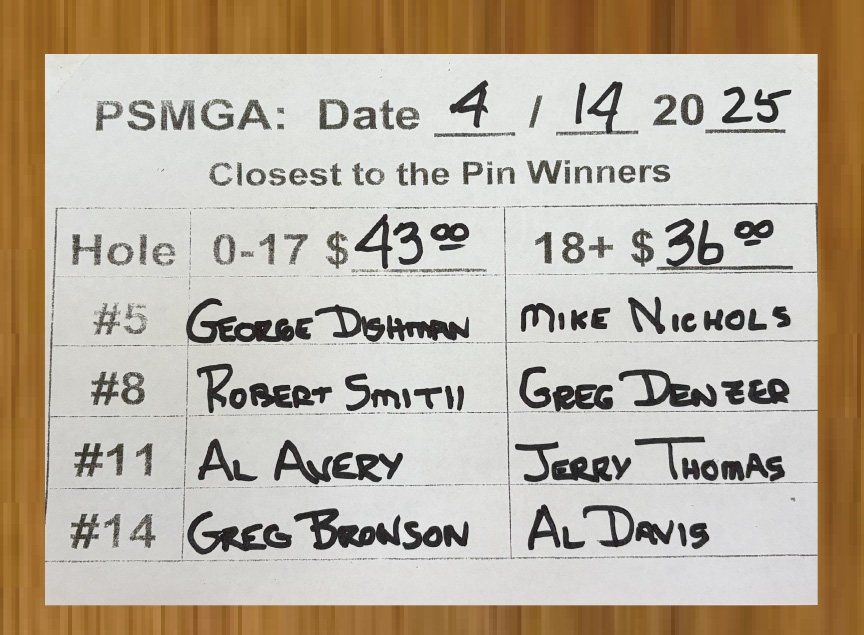 PSMGA: Date 4 / 14 2025
Closest to the Pin Winners
Hole 0-17 $43 00 18+ $36 00
#5 GEORGE DISHMAN MIKE NICHOLS
#8 ROBERT SMITH GREG DENZER
#11 AL AVERY JERRY THOMAS
#14 GREG BRONSON AL DAVIS